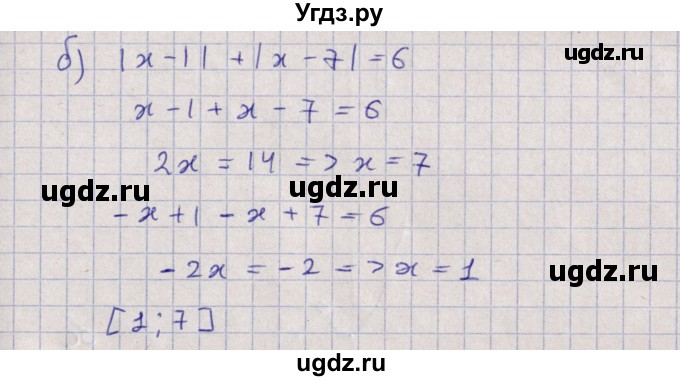 Угдз.ру
б) |x-1| + |x-7| = 6
x-1+x-7=6
2x = 14 => x = 7
ugdz.ru
ugdz.ru
ugdz.ru
-x+1-x+7=6
-2x = -2 => x = 1
ugdz.ru
[1;7]
ugdz.ru